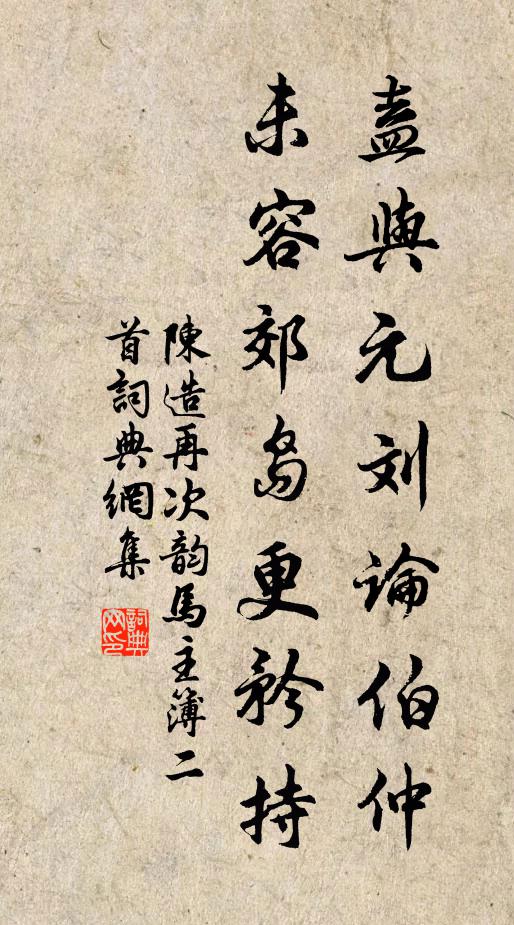 盍與元刘論伯仲
未容郊島更矜持
陳造再次韵馬主簿二
首詞典網集
詞典
网印